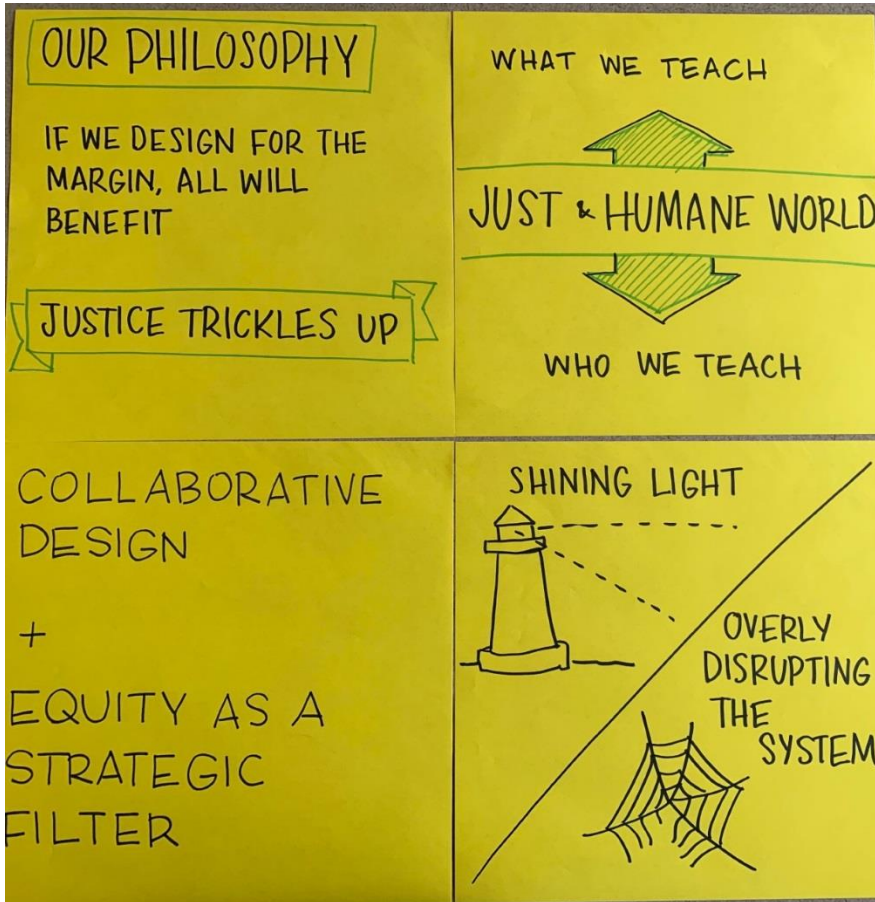 OUR PHILOSOPHY
IF WE DESIGN FOR THE
MARGIN, ALL WILL
BENEFIT
JUSTICE TRICKLES UP
WHAT WE TEACH
JUST & HUMANE WORLD
WHO WE TEACH
COLLABORATIVE
DESIGN
+
EQUITY AS A
STRATEGIC
FILTER
SHINING LIGHT
OVERLY
DISRUPTING
THE
SYSTEM